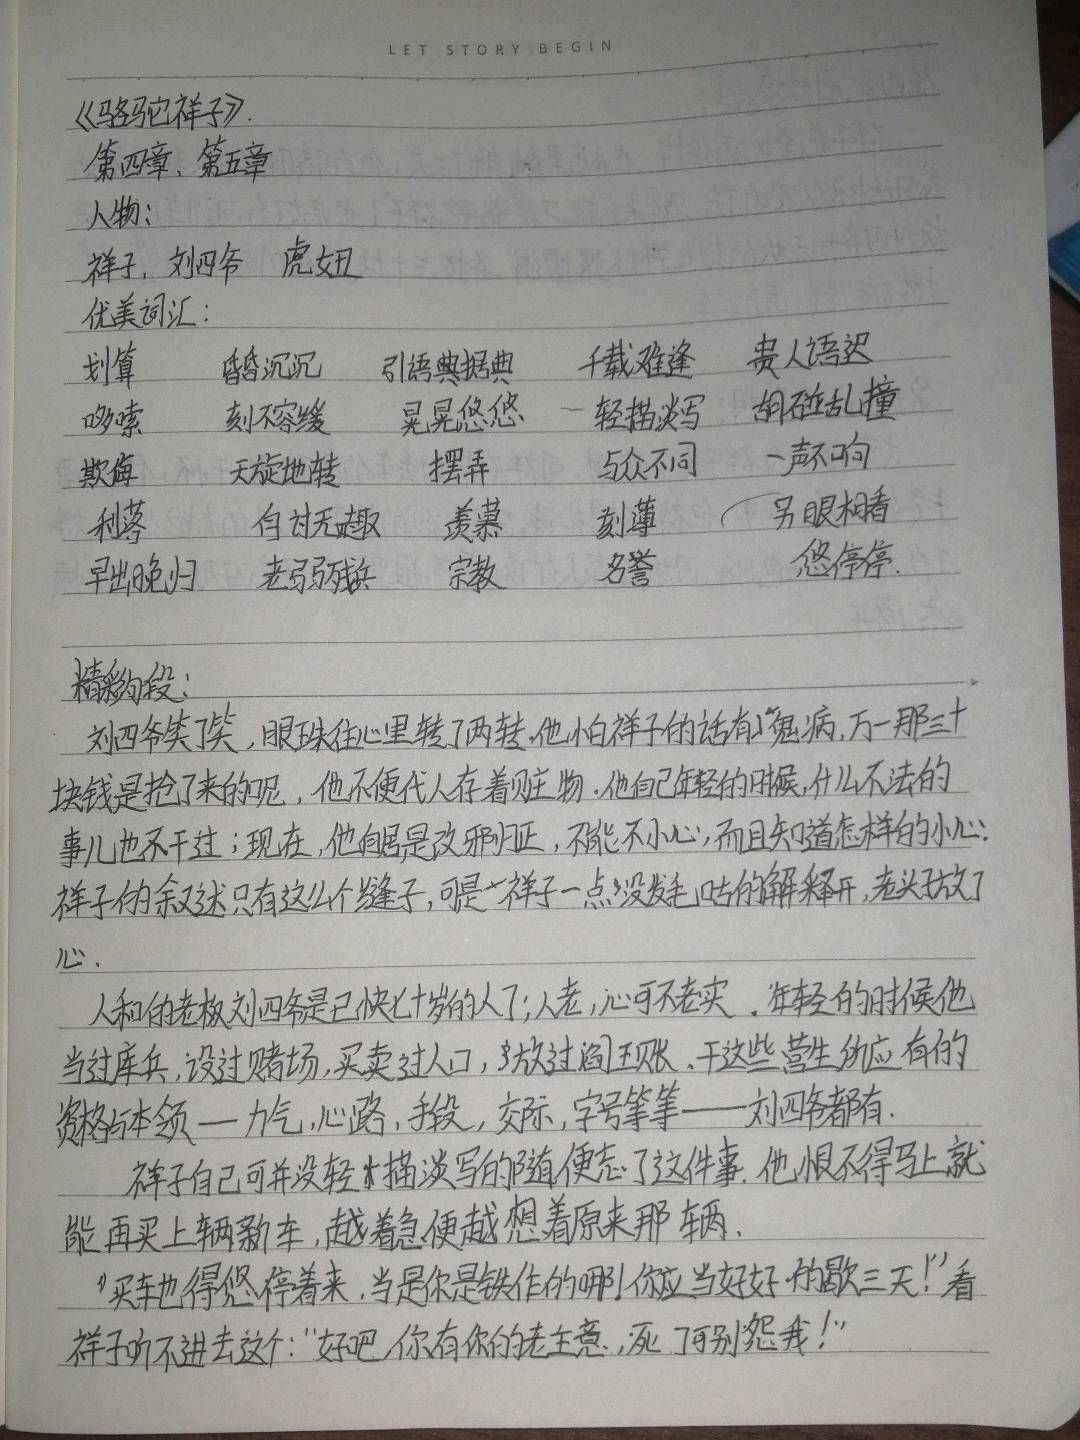 LET STORY BEGIN
《骆驼祥子》.
第四章、第五章
人物：
祥子，刘四爷 虎妞
优美词汇：
划算 昏昏沉沉 引语典据典 千载难逢 贵人语迟
哆嗦 刻不容缓 晃晃悠悠 轻描淡写 胡碰乱撞
欺侮 天旋地转 摆弄 与众不同 一声不响
利落 自讨无趣 羡慕 刻薄 另眼相看
早出晚归 老弱残兵 宗教 名誉 悠停停.
精彩段：
刘四爷笑了笑，眼珠往心里转了两转.他怕祥子的话有鬼病，万一那三十
块钱是抢了来的呢，他不便代人存着赃物.他自己年轻的时候，什么不法的
事儿也不干过；现在，他自居是改邪归正，不能不小心，而且知道怎样的小心.
祥子的叙述只有这么个缝子，可是祥子一点没发毛咕的解释开，老头子放了
心.
人和的老板刘四爷是已快七十岁的人了；人老，心可不老实.年轻的时候他
当过库兵，设过赌场，买卖过人口，放过阎王账.干这些营生所应有的
资格与本领——力气，心路，手段，交际，字号等等——刘四爷都有.
祥子自己可并没轻描淡写的随便忘了这件事.他恨不得马上就
能再买上辆新车，越着急便越想着原来那辆.
“买车也得悠停着来，当是你是铁作的哪！你应当好好的歇三天！”看
祥子听不进去这个：“好吧，你有你的老主意，死了可别怨我！”